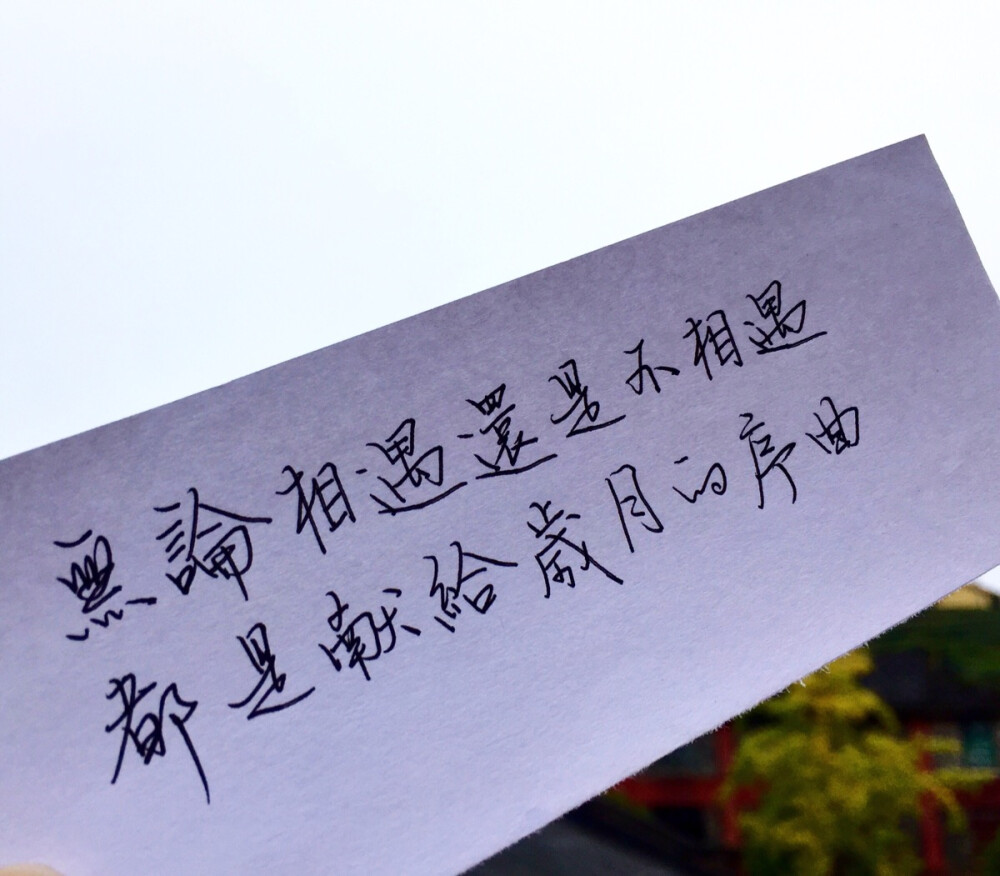 無論相遇還是不相遇
都是献給歲月的序曲